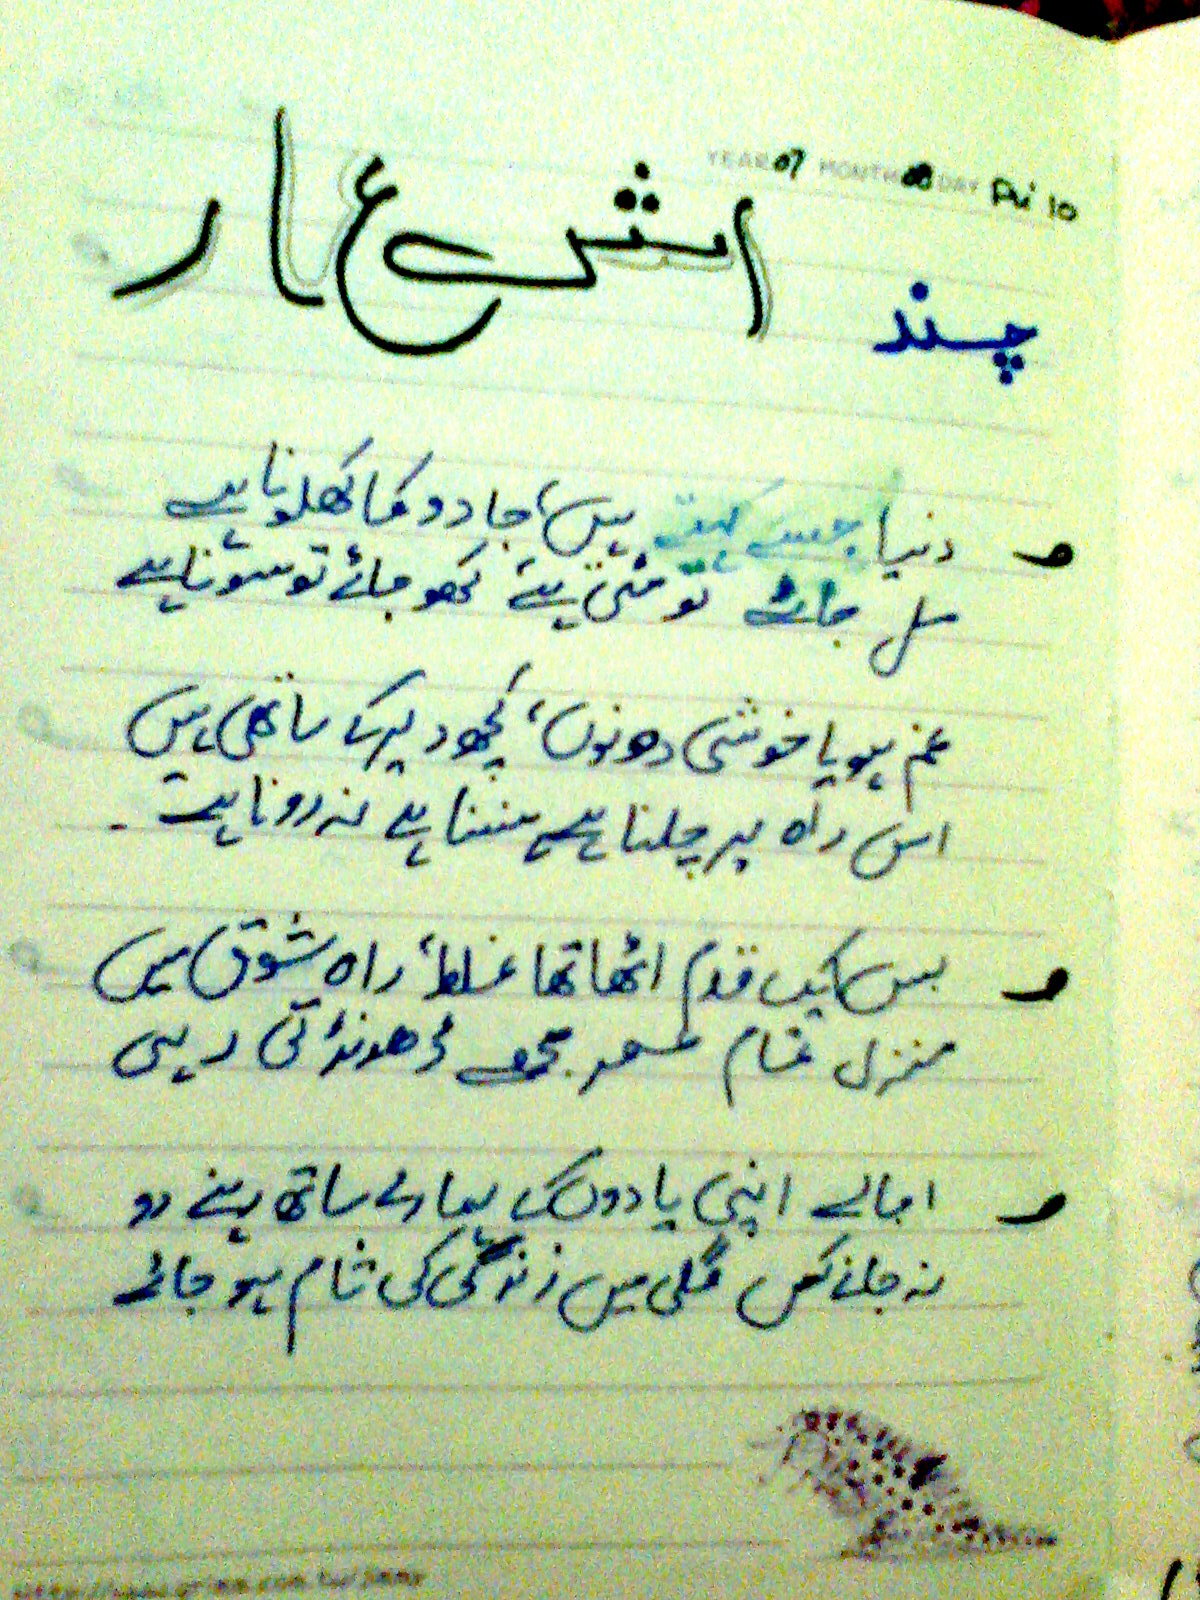 YEAR 07 MONTH 08 DAY Fri 10
چند اشعار
دنیا جسے کہتے ہیں، جادو کا کھلونا ہے
مل جائے تو مٹی ہے کھو جائے تو سونا ہے
غم ہو یا خوشی دونوں، کچھ دیر کے ساتھی ہیں
اس راہ پر چلنا ہے ہنسنا ہے نہ رونا ہے۔
بس ایک قدم اٹھا تھا غلط، راہ شوق میں
منزل تمام عمر مجھے ڈھونڈتی رہی
اجالے اپنی یادوں کے ہمارے ساتھ رہنے دو
نہ جانے کس گلی میں زندگی کی شام ہو جائے